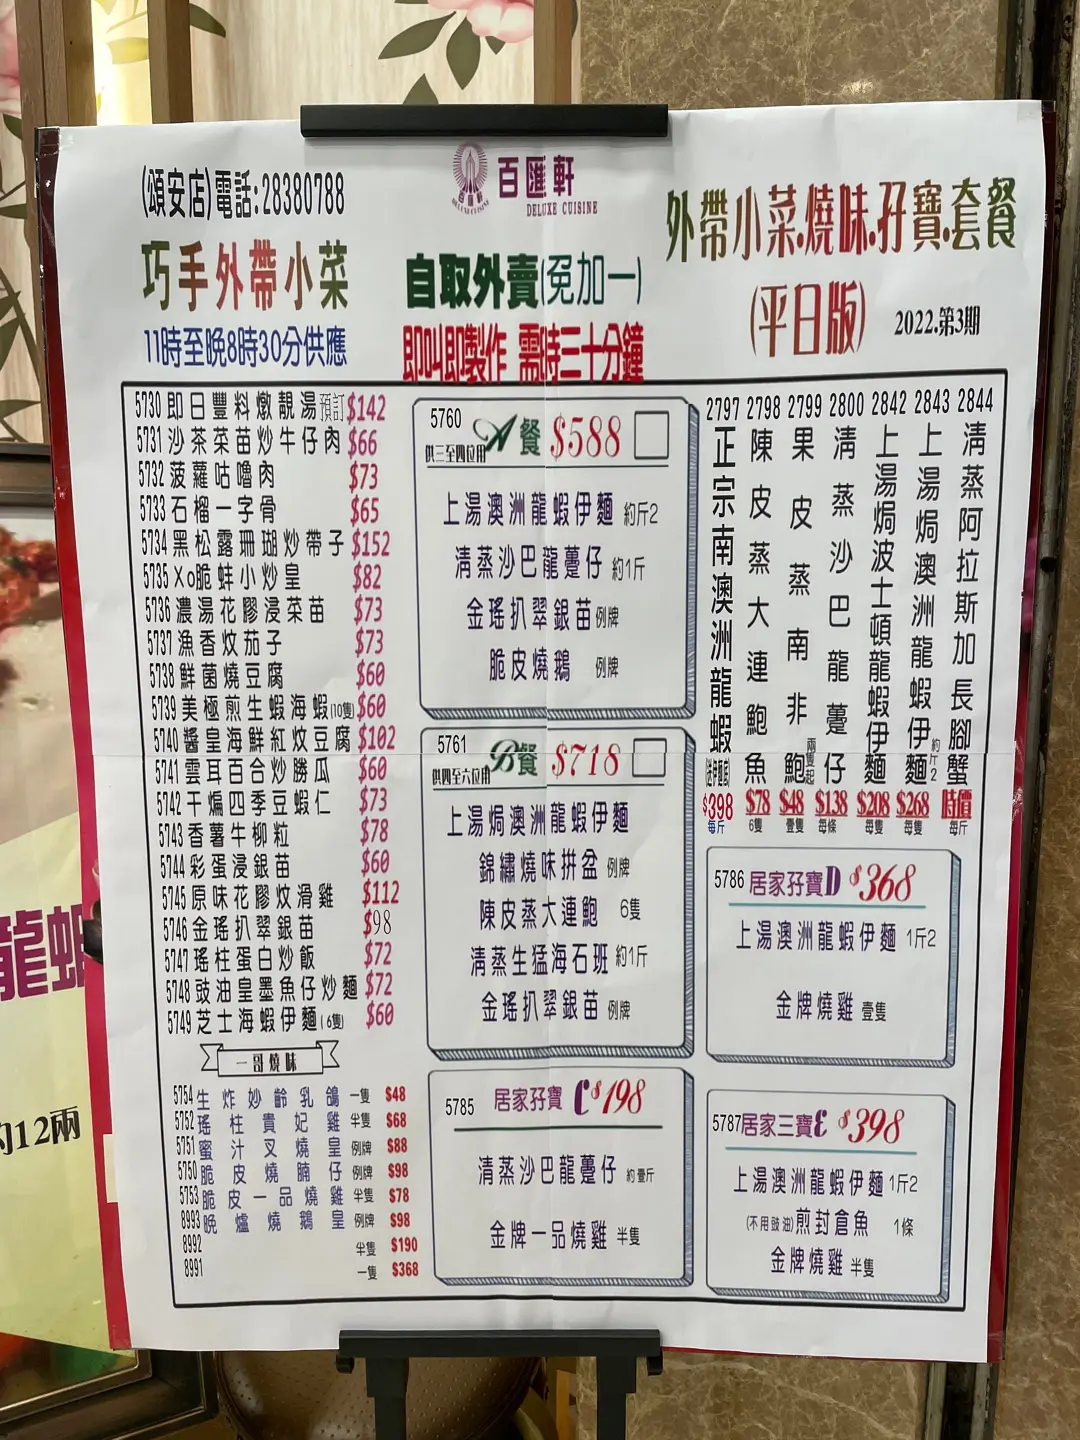 (頌安店)電話:28380788
巧手外帶小菜
11時至晚8時30分供應
百匯軒
DELUXE CUISINE
自取外賣(免加一)
即叫即製作 需時三十分鐘
外帶小菜.燒味.孖寶.套餐
(平日版)
2022.第3期
5730 即日豐料燉靚湯預訂 $142
5731 沙茶菜苗炒牛仔肉 $66
5732 菠蘿咕嚕肉 $73
5733 石榴一字骨 $65
5734 黑松露珊瑚炒帶子 $152
5735 Xo脆蚌小炒皇 $82
5736 濃湯花膠浸菜苗 $73
5737 漁香炆茄子 $73
5738 鮮菌燒豆腐 $60
5739 美極煎生蝦海蝦(10隻) $60
5740 醬皇海鮮紅炆豆腐 $102
5741 雲耳百合炒勝瓜 $60
5742 干煸四季豆蝦仁 $73
5743 香薯牛柳粒 $78
5744 彩蛋浸銀苗 $60
5745 原味花膠炆滑雞 $112
5746 金瑤扒翠銀苗 $98
5747 瑤柱蛋白炒飯 $72
5748 豉油皇墨魚仔炒麵 $72
5749 芝士海蝦伊麵(6隻) $60
一哥燒味
5754 生炸妙齡乳鴿 一隻 $48
5752 瑤柱貴妃雞 半隻 $68
5751 蜜汁叉燒皇 例牌 $88
5750 脆皮燒腩仔 例牌 $98
5753 脆皮一品燒雞 半隻 $78
8993 晚爐燒鵝皇 例牌 $98
8992 半隻 $190
8991 一隻 $368
5760 A餐 $588
供三至四位用
上湯澳洲龍蝦伊麵 約斤2
清蒸沙巴龍躉仔 約1斤
金瑤扒翠銀苗 例牌
脆皮燒鵝 例牌
5761 B餐 $718
供四至六位用
上湯焗澳洲龍蝦伊麵
錦繡燒味拼盆 例牌
陳皮蒸大連鮑 6隻
清蒸生猛海石班 約1斤
金瑤扒翠銀苗 例牌
5785 居家孖寶 C $198
清蒸沙巴龍躉仔 約壹斤
金牌一品燒雞 半隻
2797 正宗南澳洲龍蝦 $398 每斤
2798 陳皮蒸大連鮑魚 $78 6隻
2799 果皮蒸南非鮑 兩隻起 $48 壹隻
2800 清蒸沙巴龍躉仔 $138 每條
2842 上湯焗波士頓龍蝦伊麵 $208 每隻
2843 上湯焗澳洲龍蝦伊麵 約斤2 $268 每隻
2844 清蒸阿拉斯加長腳蟹 時價 每斤
5786 居家孖寶D $368
上湯澳洲龍蝦伊麵 1斤2
金牌燒雞 壹隻
5787 居家三寶E $398
上湯澳洲龍蝦伊麵 1斤2
(不用豉油)煎封倉魚 1條
金牌燒雞 半隻
龍蝦
約12兩